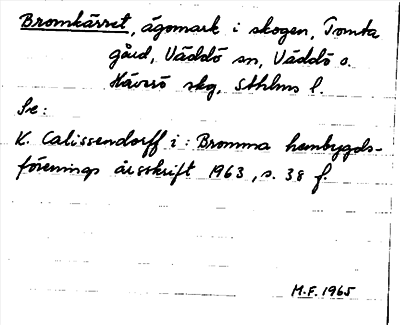 Bromkärret, ägomark i skogen, Tomta
gård, Väddö sn, Väddö o.
Häverö skg, Sthlms l.
Se:
K. Calissendorff i: Bromma hembygds-
förenings årsskrift 1963, s. 38 f.
M.F. 1965